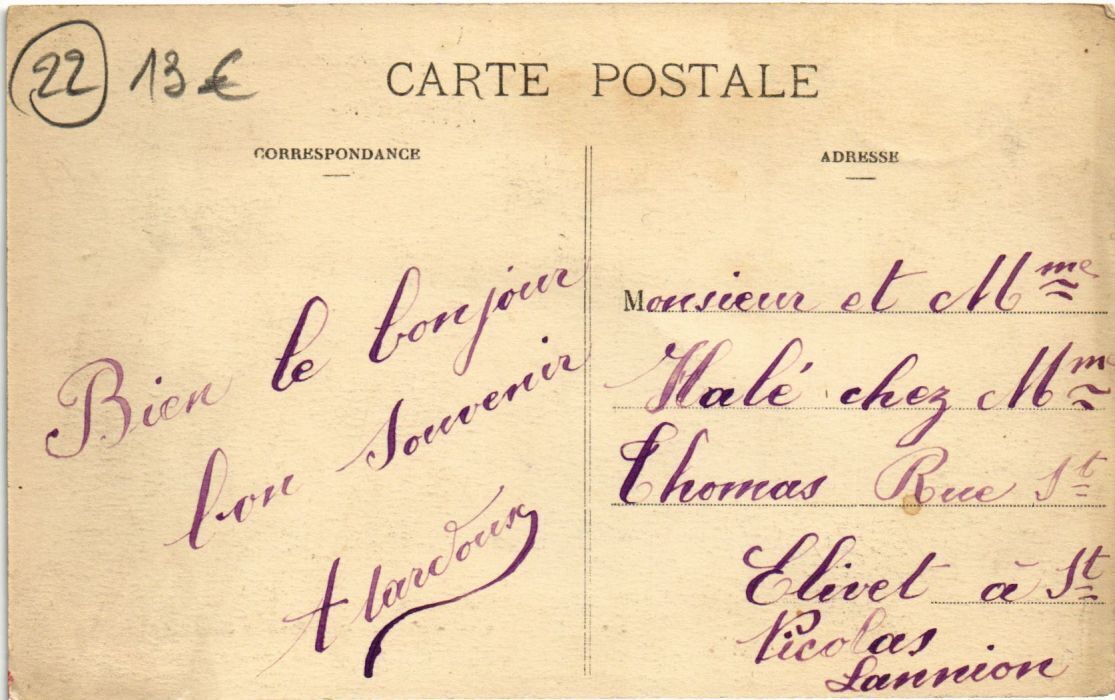 22 13 €
CARTE POSTALE
CORRESPONDANCE
Bien le bonjour
bon souvenir
ADRESSE
Monsieur et Mme
Halé chez Mme
Thomas Rue St
Elivet à St
Nicolas
Lannion